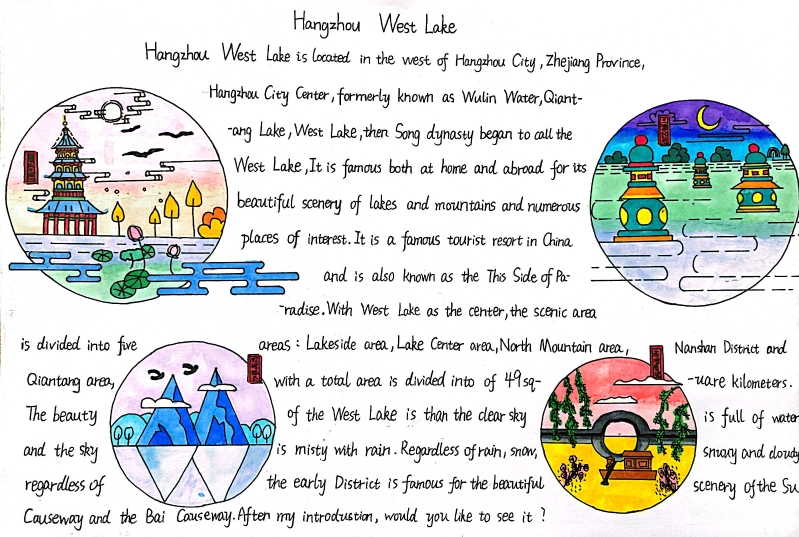 Hangzhou West Lake
Hangzhou West Lake is located in the west of Hangzhou City, Zhejiang Province,
Hangzhou City Center, formerly known as Wulin Water, Qiant-
-ang Lake, West Lake, then Song dynasty began to call the
West Lake, It is famous both at home and abroad for its
beautiful scenery of lakes and mountains and numerous
places of interest. It is a famous tourist resort in China
and is also known as the This Side of Pa-
-radise. With West Lake as the center, the scenic area
is divided into five areas: Lakeside area, Lake Center area, North Mountain area, Nanshan District and
Qiantang area, with a total area is divided into of 49 sq- -uare kilometers.
The beauty of the West Lake is than the clear sky is full of water
and the sky is misty with rain. Regardless of rain, snow, snowy and cloudy
regardless of the early District is famous for the beautiful scenery of the Su
Causeway and the Bai Causeway. After my introduction, would you like to see it?